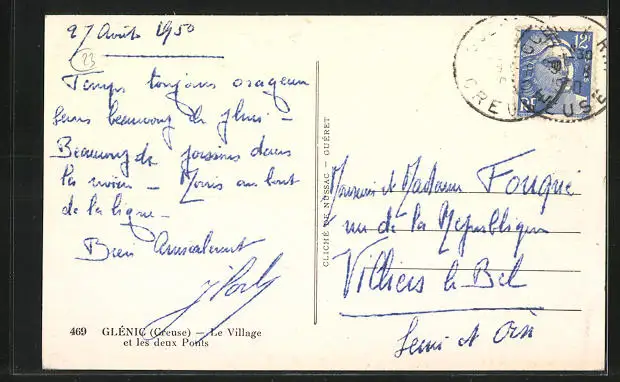 27 Août 1950
23
Temps toujours orageux
sans beaucoup de pluie -
Beaucoup de poissons dans
la rivière - Mais au bout
de la ligne -
Bien Amicalement
469 GLÉNIC (Creuse) — Le Village
et les deux Ponts
CLICHÉ DE NUSSAC - GUÉRET
CREUSE
12F
RF
Monsieur et Madame Fouque
rue de la République
Villiers le Bel
Seine et Oise